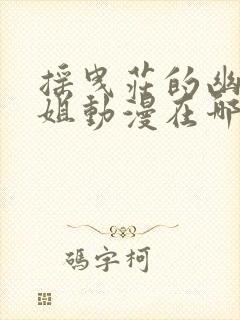 採曳莊的幽
姐動漫在哪
碼字柯